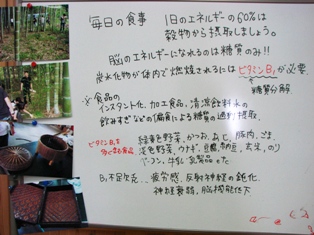 毎日の食事　1日のエネルギーの60%は
穀物から摂取しましょう。
脳のエネルギーになれるのは糖質のみ!!
炭水化物が体内で燃焼されるにはビタミンB₁が必要。
糖質分解
※食品の
インスタント化、加工食品、清涼飲料水の
飲みすぎなどの偏食による糖質の過剰摂取。
ビタミンB₁を
多く含む食品
緑黄色野菜、かつお、あじ、豚肉、ごま、
淡色野菜、ウナギ、豆腐、納豆、玄米、のり
ベーコン、牛乳、乳製品 etc
B₁不足欠乏…疲労感、反射神経の鈍化、
神経衰弱、脳機能低下